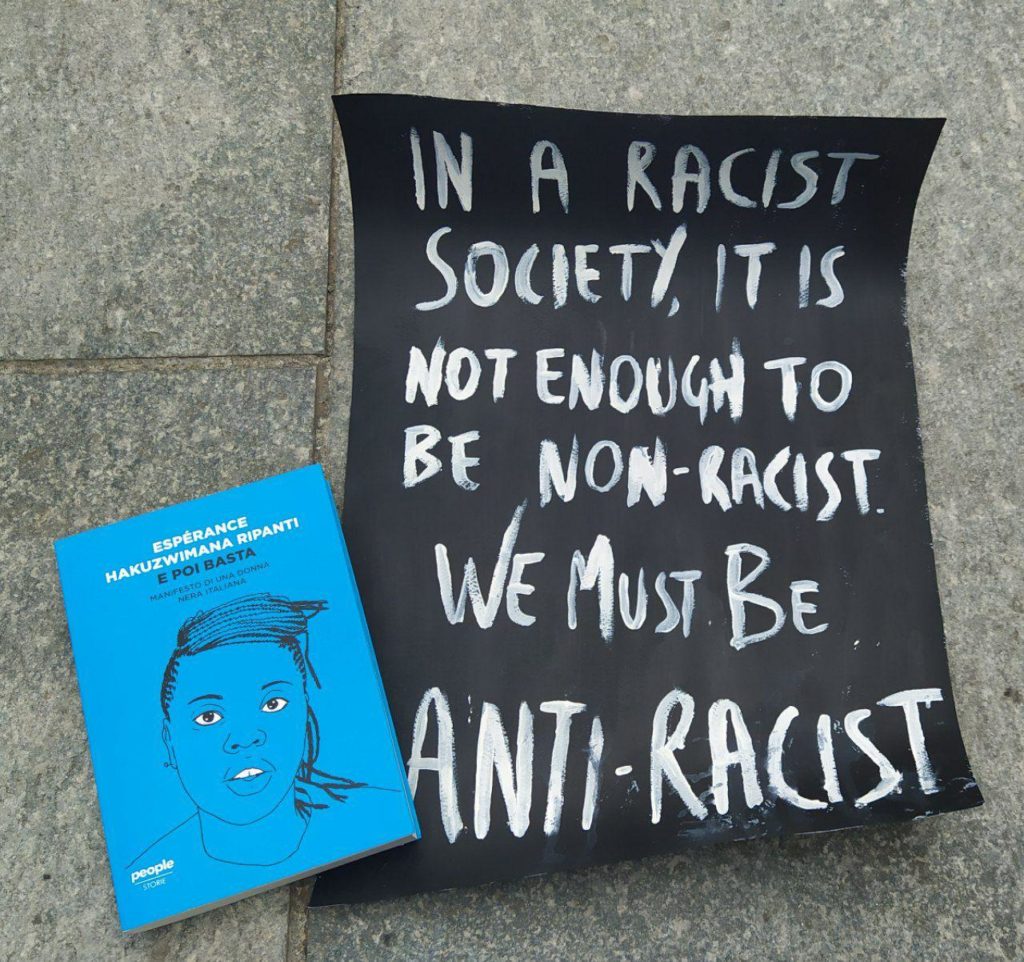 IN A RACIST
SOCIETY, IT IS
NOT ENOUGH TO
BE NON-RACIST.
WE MUST BE
ANTI-RACIST
ESPÉRANCE
HAKUZWIMANA RIPANTI
E POI BASTA
MANIFESTO DI UNA DONNA
NERA ITALIANA
people
STORIE